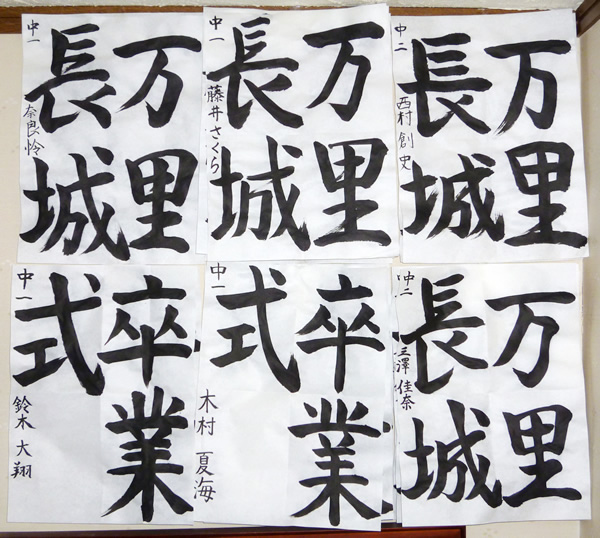 万里
長城
中一
奈良怜
万里
長城
中一
藤井さくら
万里
長城
中二
西村創史
卒業
式
中一
鈴木大翔
卒業
式
中一
木村夏海
万里
長城
中二
三澤佳奈